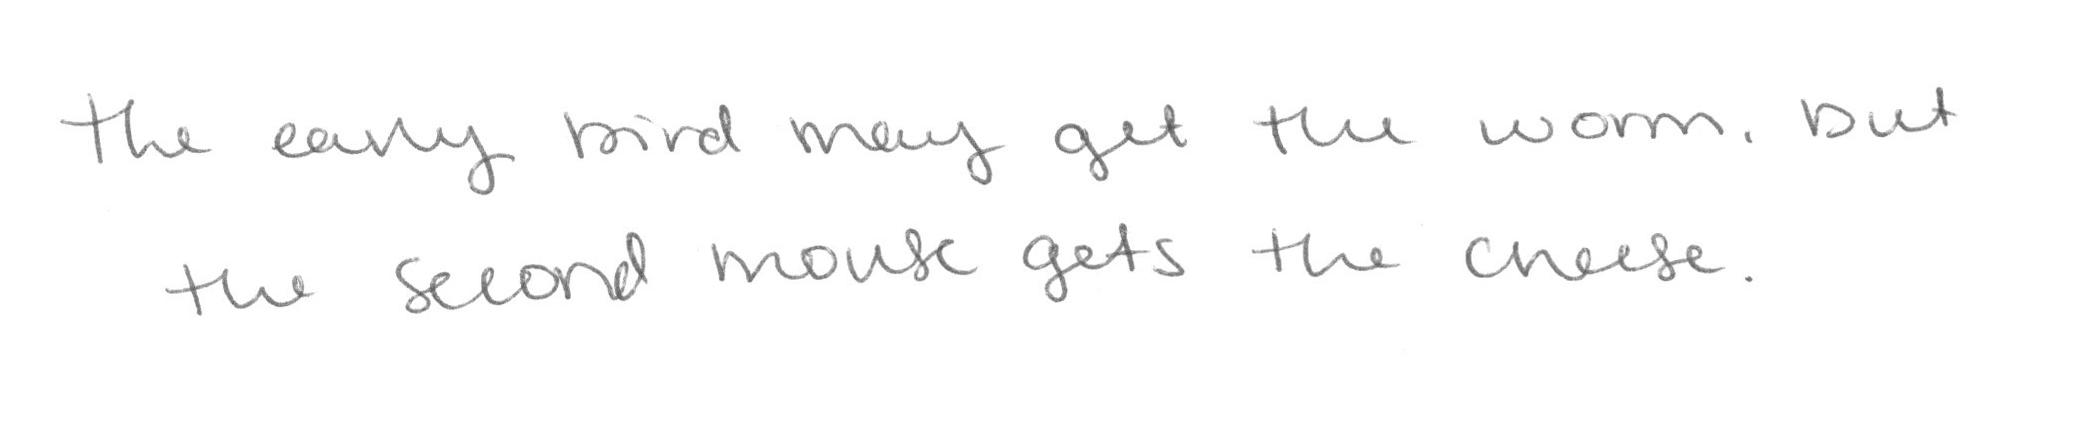 the early bird may get the worm. but
the second mouse gets the cheese.